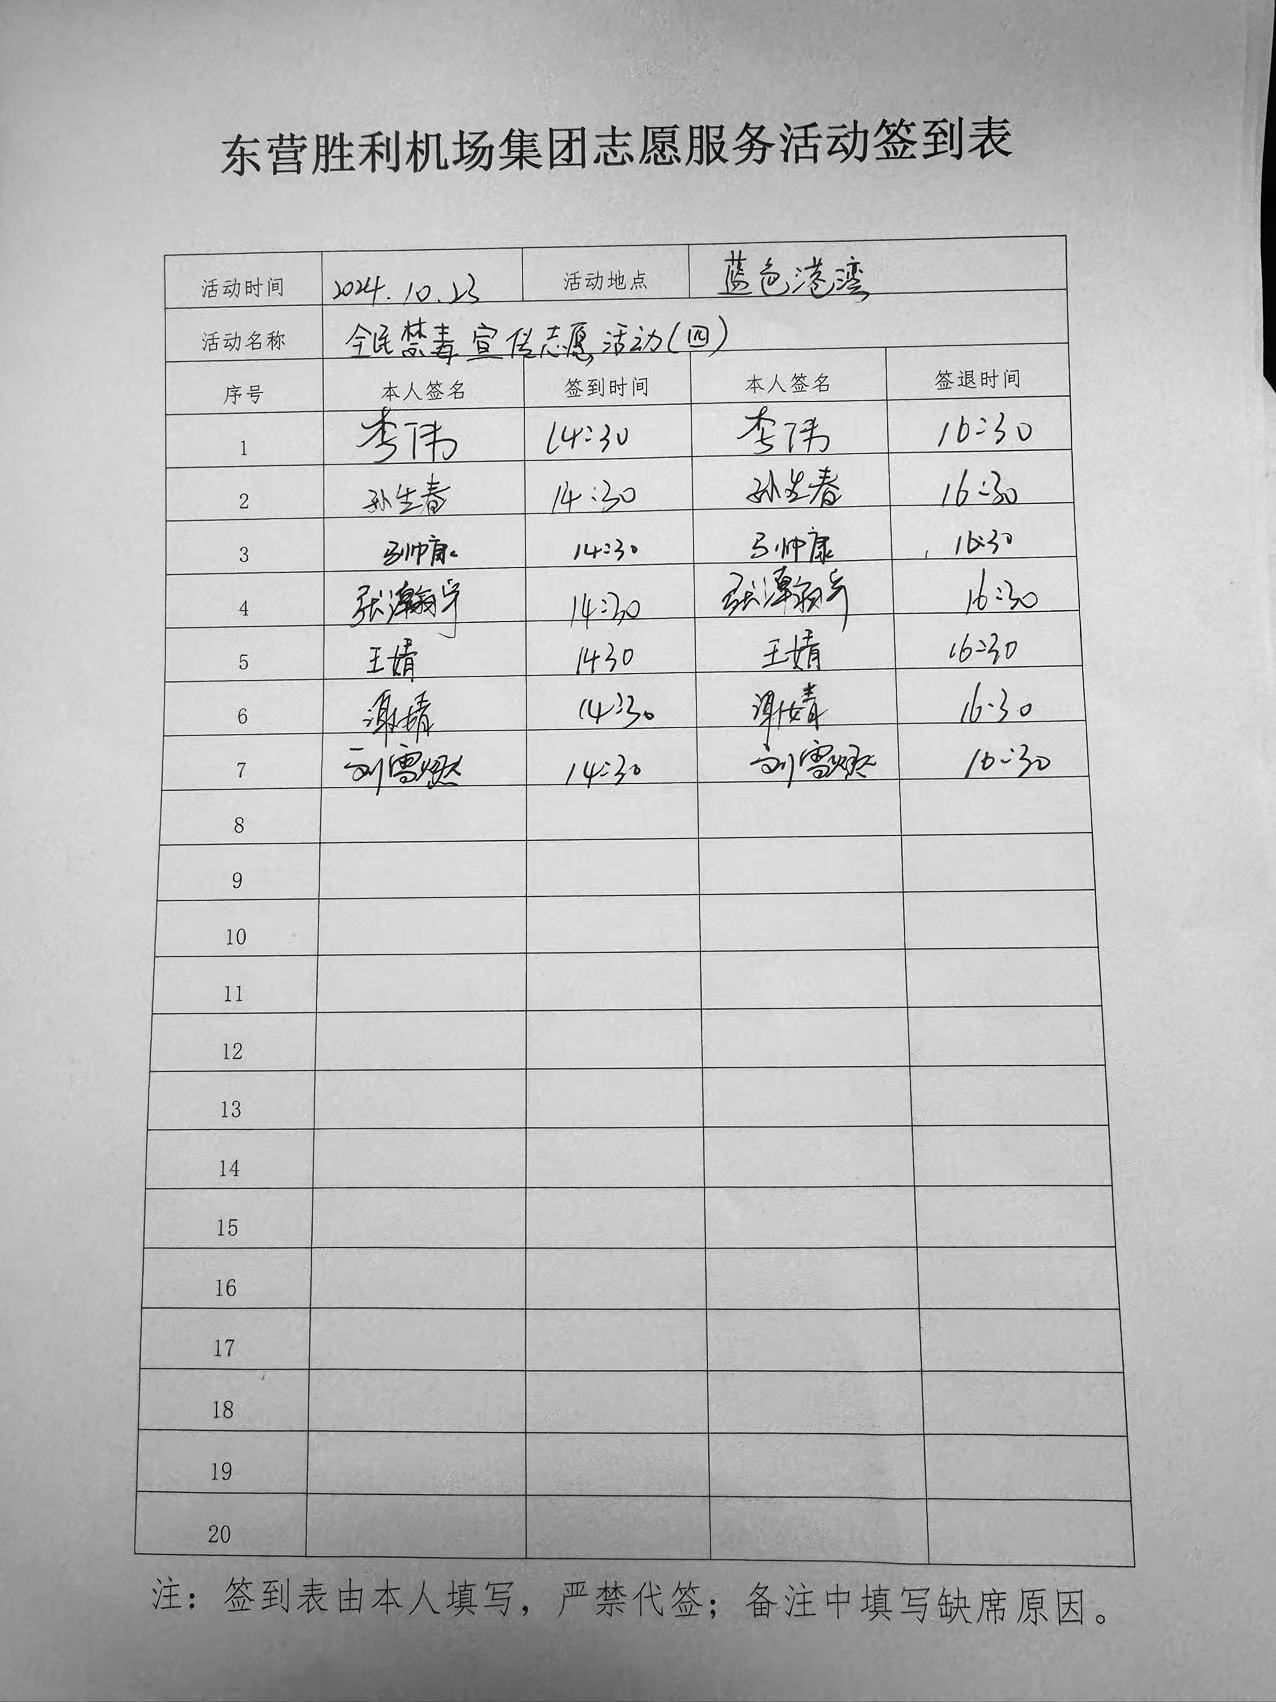 东营胜利机场集团志愿服务活动签到表
活动时间 2024.10.23 活动地点 蓝色港湾
活动名称 全民禁毒宣传志愿活动(四)
序号 本人签名 签到时间 本人签名 签退时间
1 李伟 14:30 李伟 16:30
2 孙生春 14:30 孙生春 16:30
3 马帅康 14:30 马帅康 16:30
4 张瀚宇 14:30 张瀚宇 16:30
5 王婧 1430 王婧 16:30
6 谢婧 14:30 谢婧 16:30
7 刘雪燃 14:30 刘雪燃 16:30
8
9
10
11
12
13
14
15
16
17
18
19
20
注：签到表由本人填写，严禁代签；备注中填写缺席原因。